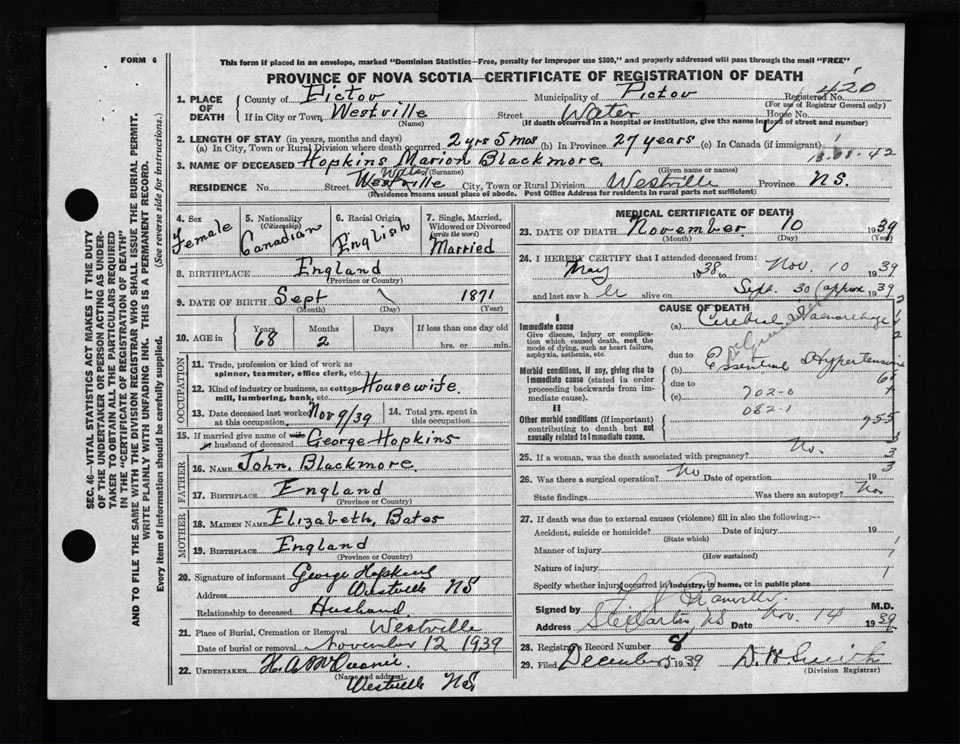 FORM 6
This form if placed in an envelope, marked "Dominion Statistics—Free, penalty for improper use $300," and properly addressed will pass through the mail "FREE"
PROVINCE OF NOVA SCOTIA—CERTIFICATE OF REGISTRATION OF DEATH
SEC. 46—VITAL STATISTICS ACT MAKES IT THE DUTY
OF THE UNDERTAKER OR PERSON ACTING AS UNDER-
TAKER TO OBTAIN ALL THE PARTICULARS REQUIRED
IN THE "CERTIFICATE OF REGISTRATION OF DEATH"
AND TO FILE THE SAME WITH THE DIVISION REGISTRAR WHO SHALL ISSUE THE BURIAL PERMIT.
WRITE PLAINLY WITH UNFADING INK. THIS IS A PERMANENT RECORD.
Every item of information should be carefully supplied. (See reverse side for instructions.)
1. PLACE OF DEATH
County of Pictou Municipality of Pictou Registered No. 420
(For use of Registrar General only)
If in City or Town Westville (Name) Street Water House No.
(If death occurred in a hospital or institution, give the name instead of street and number)
2. LENGTH OF STAY (in years, months and days)
(a) In City, Town or Rural Division where death occurred 2 yrs 5 mos (b) In Province 27 years (c) In Canada (if immigrant)
3. NAME OF DECEASED Hopkins Marion Blackmore
(Surname) (Given name or names)
RESIDENCE No. Street Water Westville City, Town or Rural Division Westville Province N.S.
(Residence means usual place of abode. Post Office Address for residents in rural parts not sufficient)
4. Sex Female
5. Nationality (Citizenship) Canadian
6. Racial Origin English
7. Single, Married, Widowed or Divorced (write the word) Married
8. BIRTHPLACE England
(Province or Country)
9. DATE OF BIRTH Sept 1871
(Month) (Day) (Year)
10. AGE in Years 68 Months 2 Days If less than one day old hrs. or min.
OCCUPATION
11. Trade, profession or kind of work as
spinner, teamster, office clerk, etc.
12. Kind of industry or business, as cotton Housewife.
mill, lumbering, bank, etc.
13. Date deceased last worked Nov 9/39
at this occupation
14. Total yrs. spent in
this occupation
15. If married give name of wife George Hopkins
or husband of deceased
FATHER
16. NAME John. Blackmore.
17. BIRTHPLACE England
(Province or Country)
MOTHER
18. MAIDEN NAME Elizabeth. Bates
19. BIRTHPLACE England
(Province or Country)
20. Signature of informant George Hopkins
Address Westville NS
Relationship to deceased Husband
21. Place of Burial, Cremation or Removal Westville
Date of burial or removal November 12 1939
22. UNDERTAKER
(Name and address)
Westville NS.
MEDICAL CERTIFICATE OF DEATH
23. DATE OF DEATH November 10 1939
(Month) (Day) (Year)
24. I HEREBY CERTIFY that I attended deceased from
May 1938 to Nov. 10 1939
and last saw h alive on Sept. 30 (approx) 1939
CAUSE OF DEATH
I
Immediate cause
Give disease, injury or complication which caused death, not the mode of dying, such as heart failure, asphyxia, asthenia, etc.
(a) Cerebral Haemorrhage
due to
Morbid conditions, if any, giving rise to immediate cause (stated in order proceeding backwards from immediate cause).
(b) Essential Hypertension
due to
(c) 702-0
082-1
II
Other morbid conditions (if important) contributing to death but not causally related to immediate cause.
955
25. If a woman, was the death associated with pregnancy? No.
26. Was there a surgical operation? No Date of operation 193
State findings Was there an autopsy? No
27. If death was due to external causes (violence) fill in also the following:—
Accident, suicide or homicide? Date of injury 19
(State which)
Manner of injury
(How sustained)
Nature of injury
Specify whether injury occurred in industry, in home, or in public place
Signed by M.D.
Address Stellarton NS Date Nov. 14 1939
28. Registrar's Record Number 8
29. Filed December 1939
(Division Registrar)